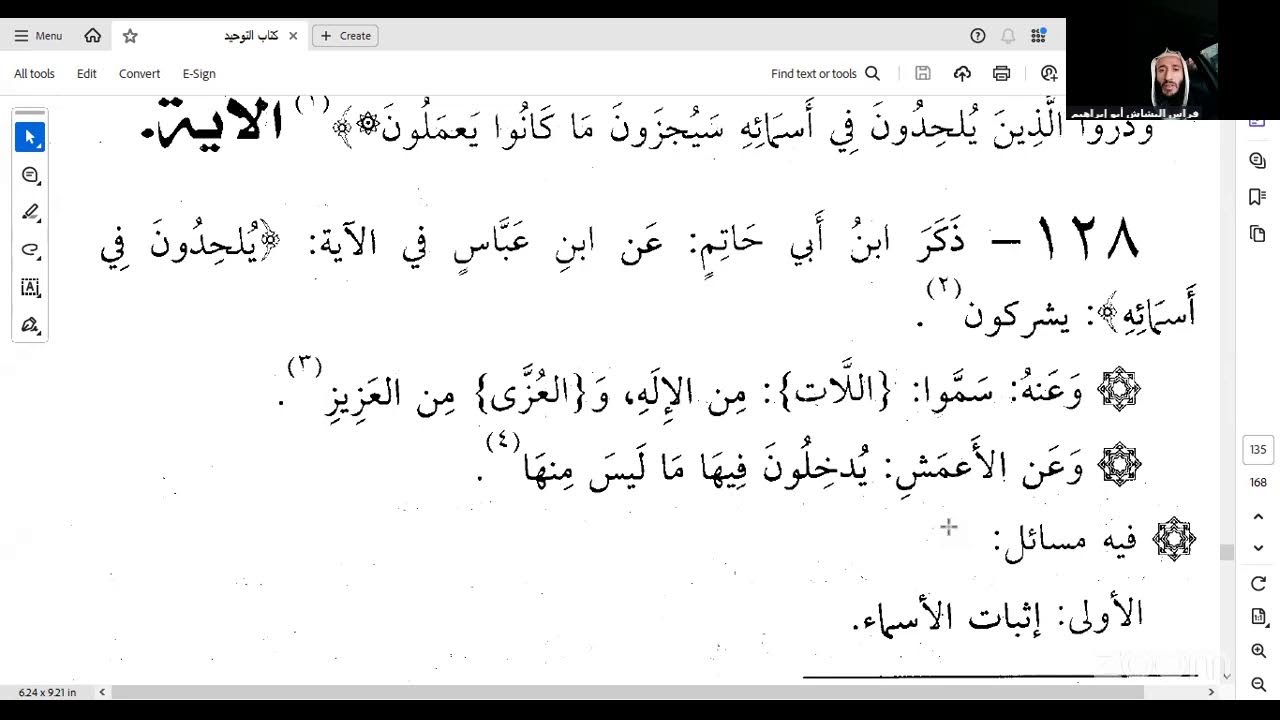 Menu
كتاب التوحيد
Create
All tools
Edit
Convert
E-Sign
Find text or tools
فراس البشاش أبو ابراهيم
وَذَرُوا الَّذِينَ يُلحِدُونَ فِي أَسمَائِهِ سَيُجزَونَ مَا كَانُوا يَعمَلُونَ﴾(١) الآية.
١٢٨ – ذَكَرَ ابنُ أَبي حَاتِمٍ: عَن ابنِ عَبَّاسٍ في الآية: ﴿يُلحِدُونَ فِي
أَسمَائِهِ﴾: يشركون(٢).
وَعَنهُ: سَمَّوا: {اللَّات}: مِن الإِلَهِ، وَ{العُزَّى} مِن العَزِيزِ(٣).
وَعَن الأَعمَشِ: يُدخِلُونَ فِيهَا مَا لَيسَ مِنهَا(٤).
فيه مسائل:
الأولى: إثبات الأسماء.
135
168
zoom
6.24 x 9.21 in